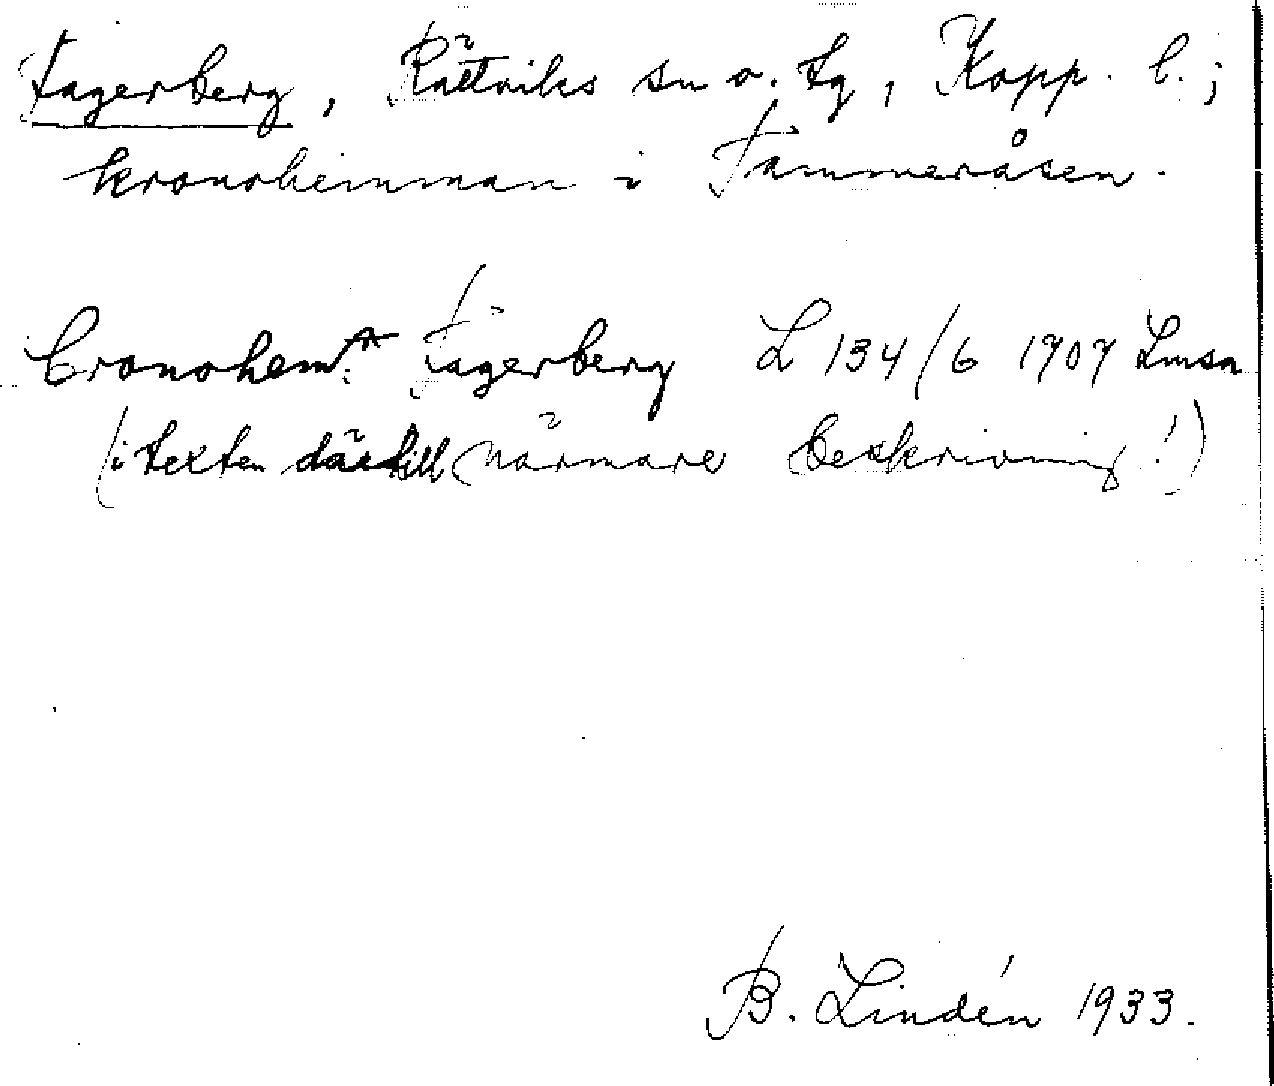 Fagerberg, Rättviks sn o. tg, Kopp. l.;
kronohemman i Tammeråsen.
Cronohem:n Fagerberg L 134/6 1707 Lmsa
(i texten därtill närmare beskrivning!)
B. Lindén 1933.